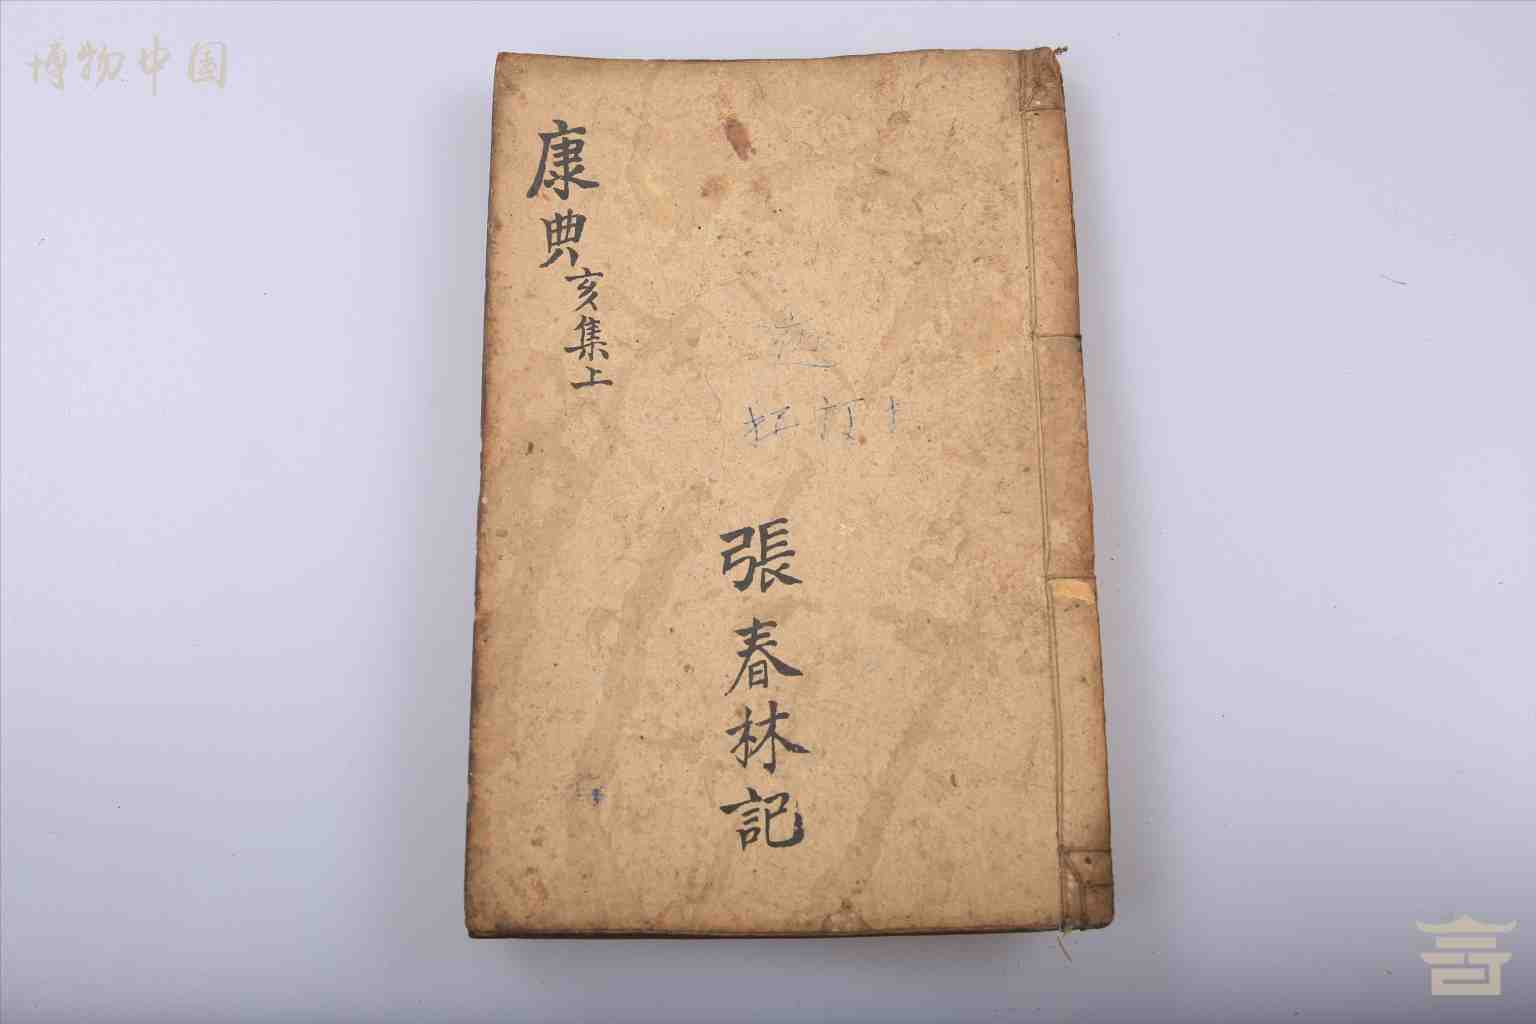 博物中国
康典亥集上
張春林記